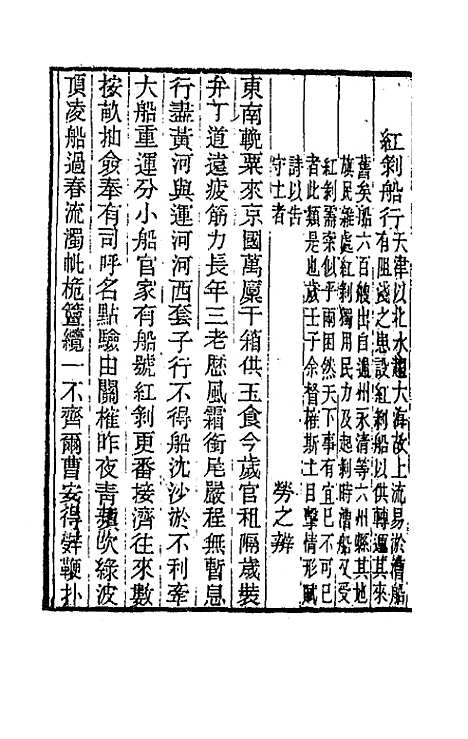 紅剝船行天津以北水趨大海故上流易淤漕船
有阻淺之患設紅剝船以供轉運其來
舊矣船六百艘出自通州永清等六州縣其地
旗民雜處紅剝獨用民力及起剝時漕船又受
紅剝需索似乎兩困然天下事有宜已不可已
者此類是也歲壬子余督榷斯土目擊情形賦
詩以告
守土者
勞之辨
東南輓粟來京國萬廩千箱供玉食今歲官租隔歲裝
弁丁道遠疲筋力長年三老歷風霜銜尾嚴程無暫息
行盡黃河與運河河西套子行不得船沈沙淤不利牽
大船重運分小船官家有船號紅剝更番接濟往來數
按畝抽僉奉有司呼名點驗由關榷昨夜青蘋吹綠波
頂凌船過春流濁帆桅簹纜一不齊爾曹安得辭鞭扑